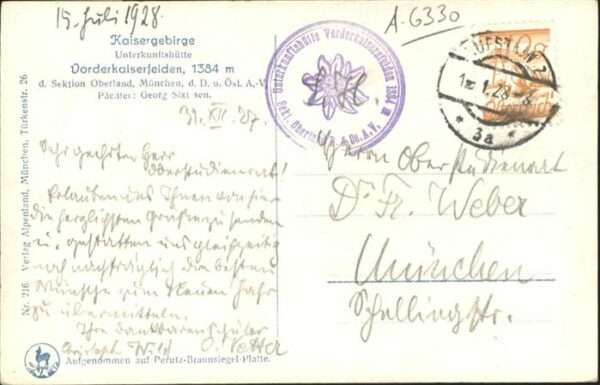 15. Juli 1928.
A. 6330
Kaisergebirge
Unterkunftshütte
Vorderkaiserfelden, 1384 m
d. Sektion Oberland, München, d. D. u. Öst. A.-V.
Pächter: Georg Sixt sen.
Unterkunftshütte Vorderkaiserfelden 1384 m
Sekt. Oberland d. D. u. Ö. A.V.
KUFSTEIN 2
1. 1. 28
* 3a *
Österreich
31. XII. 27.
Sehr geehrter Herr
Oberstudienrat!
Erlauben Sie Ihnen von hier
die herzlichsten Grüße zu senden
u. gestatten uns gleichzeitig
noch nachträglich die besten
Wünsche zum Neuen Jahr
zu übermitteln.
Ihre dankbaren Schüler
Christoph Wild O. Vetter
Herrn Oberstudienrat
Dr. Fr. Weber
München
Schellingstr.
Nr. 216 Verlag Alpenland, München, Türkenstr. 26
Aufgenommen auf Perutz-Braunsiegel-Platte.